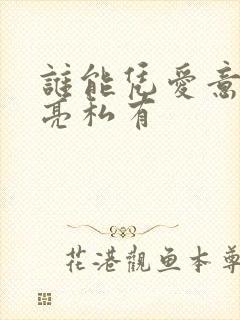 誰能凭愛意
亮私有
花港觀鱼本尊